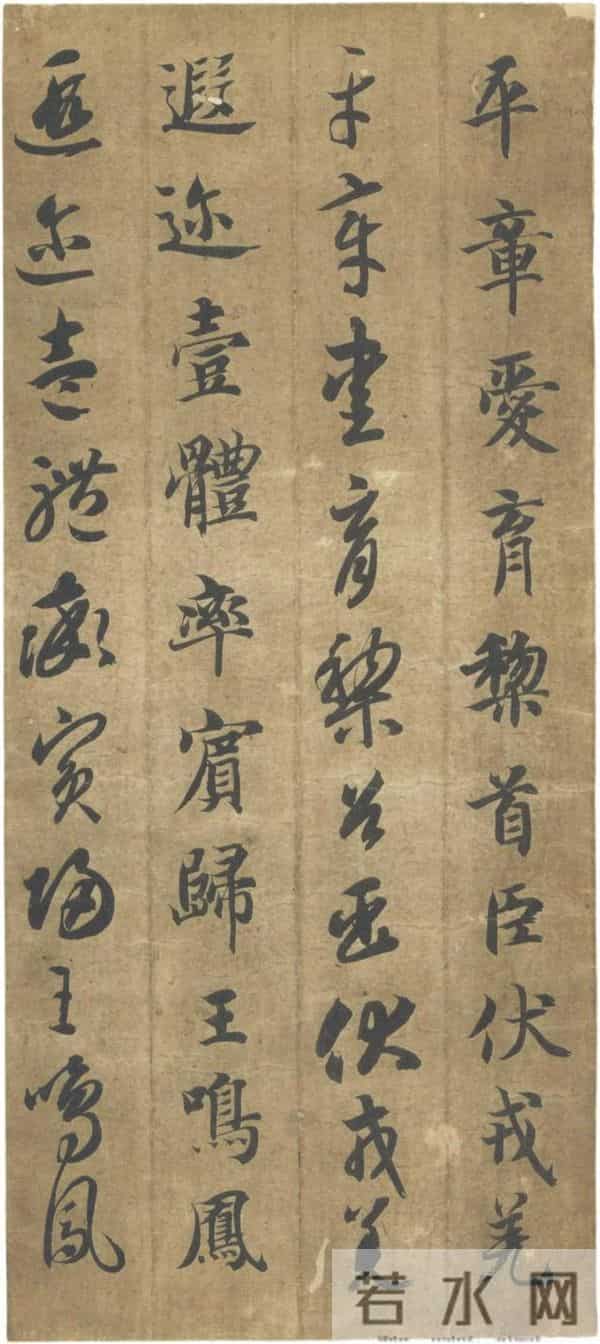 平章愛育黎首臣伏戎羌
平章愛育黎首臣伏戎羌
遐迩壹體率賓歸王鳴鳳
遐迩壹體率賓歸王鳴鳳
若水网